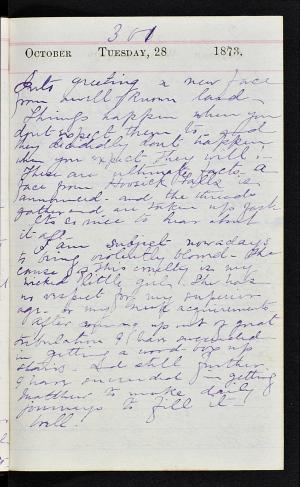 301
OCTOBER TUESDAY, 28 1873.
greeting a new face
from a well known land -
Things happen when you
don't expect them to - and
they decidedly don't happen
when you expect they will. -
These are ultimate facts. a
face from Hoosick Falls is
announced - and the threads
gathered and are taken up just
so nice to hear about
it all.
I am subject nowadays
to being violently blamed - The
cause of this cruelty is my
wicked little girl. She has
no respect for my superior
age, or my acquirements
After coming up out of great
tribulation I have succeeded
in getting a wood-box up
stairs. And still further
I have succeeded in getting
Matthew to make daily
journeys to fill it -